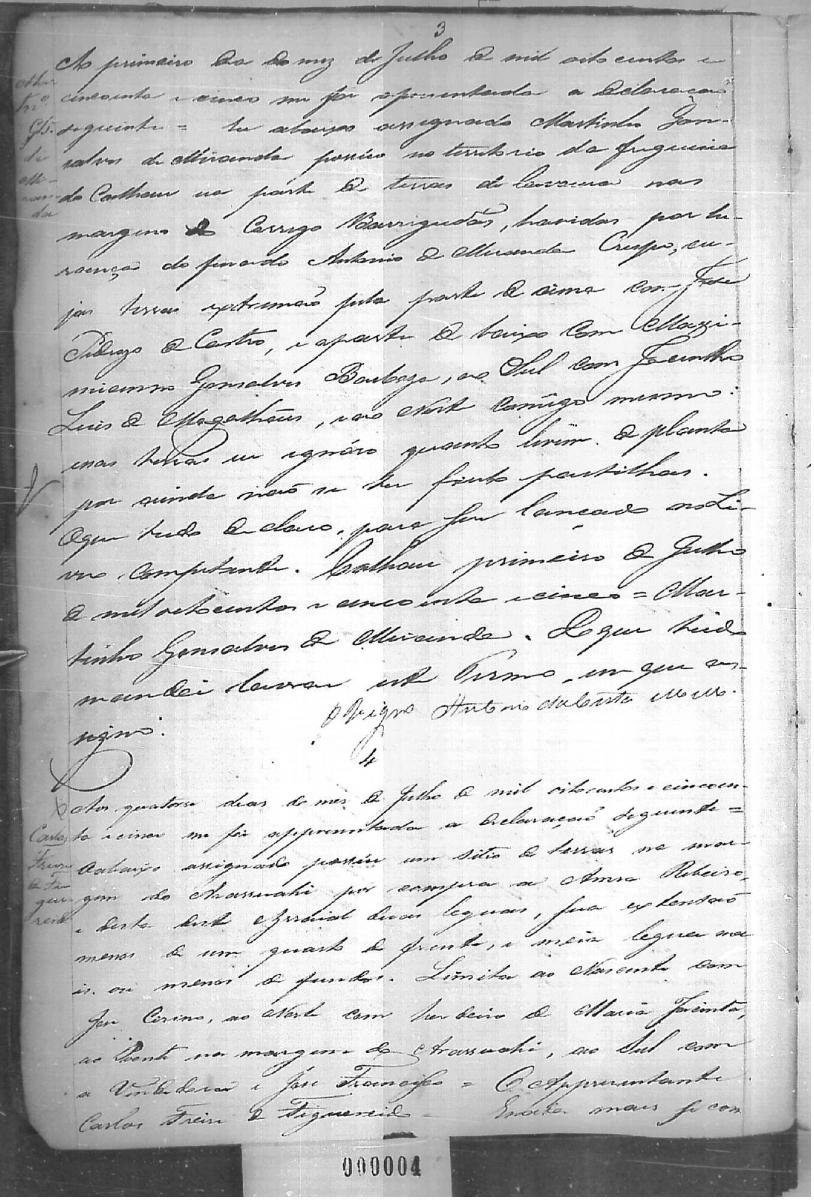 3
Ao primeiro dia do mez de Julho de mil oitocentos e
cincoenta e cinco me foi apresentada a declaração
seguinte = Eu abaixo assignado Martinho Gon-
salves de Miranda possuo no territorio da freguezia
do Calhau ua parte de terras de lavoura nas
margens do Corrego Barrigudas, havidas por he-
rança do finado Antonio de Miranda Crespo, cu-
jas terras extremão pela parte de cima com José
Pedrozo de Castro, e aparte de baixo com Maxi-
mianno Gonsalves Barboza, ao Sul com Jacintho
Luis de Magalhães, e ao Norte comigo mesmo:
cujas terras eu ignóro quanto levem de planta
por ainda não se ter feito partilhas.
O que tudo declaro, para ser lançado no Li-
vro competente. Calhau primeiro de Julho
de mil oitocentos e cincoenta e cinco = Mar-
tinho Gonsalves de Miranda. Do que tudo
mandei lavrar este Termo, em que as-
signo.
O Vigro Antonio da Costa
4
Aos quatorse dias do mes de Julho de mil oitocentos e cincoen-
ta e cinco me foi appresentada a declaração seguinte =
O abaixo assignado possue um sitio de terras na mar-
gem do Arassuahi por compra a Anna Ribeiro,
e dista deste Arraial duas leguas, sua extensão
menos de um quarto de frente, e meia legua ma
is ou menos de fundos. Limita ao Nascente com
José Cirino, ao Norte com herdeiro de Maria Jacinta,
ao Poente na margem do Arassuahi, ao Sul com
a Vendedora e José Francisco = O Appresentante
Carlos Freire de Figueiredo = Enada mais se con
000004